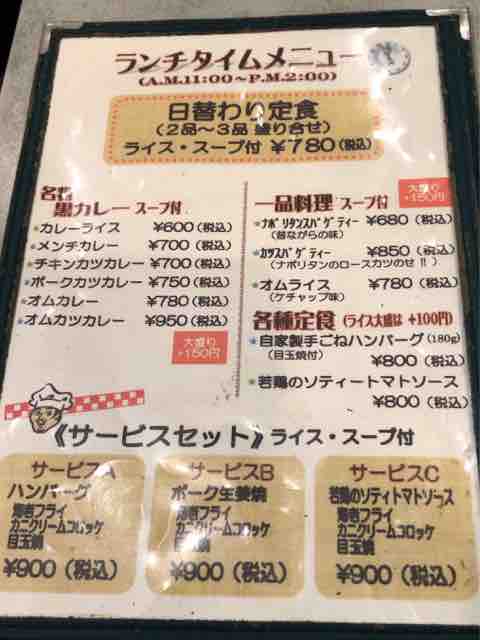 ランチタイムメニュー
(A.M.11:00～P.M.2:00)
日替わり定食
(2品～3品 盛り合せ)
ライス・スープ付 ¥780(税込)
名物
黒カレー スープ付
カレーライス ¥600(税込)
メンチカレー ¥700(税込)
チキンカツカレー ¥700(税込)
ポークカツカレー ¥750(税込)
オムカレー ¥780(税込)
オムカツカレー ¥950(税込)
大盛り
+150円
一品料理 スープ付
大盛り
+150円
ナポリタンスパゲティー ¥680(税込)
(昔ながらの味)
カツスパゲティー ¥850(税込)
(ナポリタンのロースカツのせ!!)
オムライス ¥780(税込)
(ケチャップ味)
各種定食 (ライス大盛は +100円)
自家製手ごねハンバーグ(180g)
(目玉焼付) ¥800(税込)
若鶏のソティートマトソース
¥800(税込)
《サービスセット》ライス・スープ付
サービスA
ハンバーグ
海老フライ
カニクリームコロッケ
目玉焼
¥900(税込)
サービスB
ポーク生姜焼
海老フライ
カニクリームコロッケ
目玉焼
¥900(税込)
サービスC
若鶏のソティトマトソース
海老フライ
カニクリームコロッケ
目玉焼
¥900(税込)